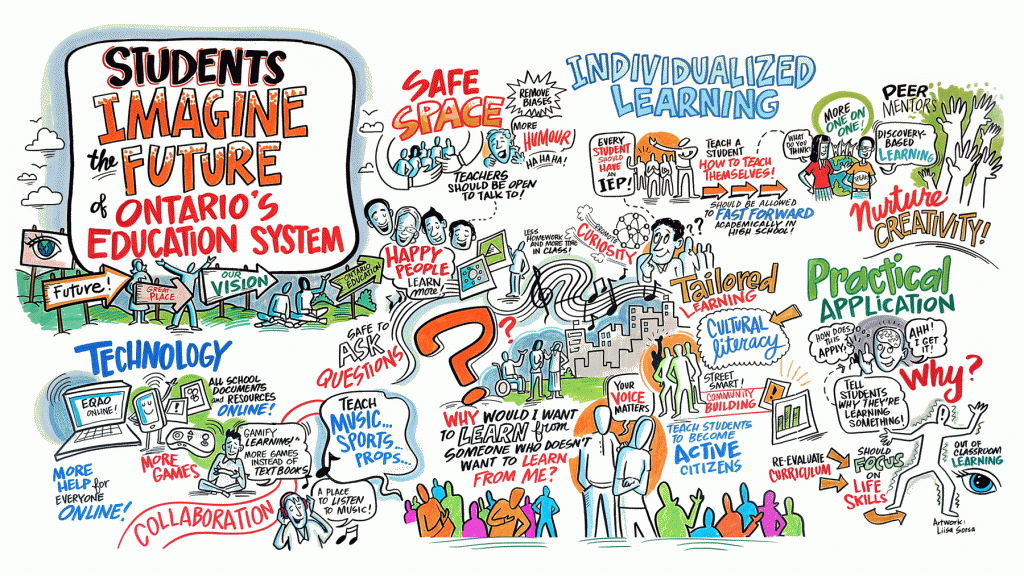 STUDENTS
IMAGINE
the FUTURE
of ONTARIO'S
EDUCATION SYSTEM
Future!
GREAT
PLACE
OUR
VISION
ONTARIO
EDUCATION
SAFE
SPACE
REMOVE
BIASES
MORE
HUMOUR!
HA HA HA!
TEACHERS
SHOULD BE OPEN
TO TALK TO!
HAPPY
PEOPLE
LEARN
more!
LESS
HOMEWORK
AND MORE TIME
IN CLASS!
INDIVIDUALIZED
LEARNING
EVERY
STUDENT
SHOULD
HAVE
AN
IEP!
TEACH A
STUDENT
HOW TO TEACH
THEMSELVES!
SHOULD BE ALLOWED
TO FAST FORWARD
ACADEMICALLY IN
HIGH SCHOOL!
WHAT
DO YOU
THINK?
MORE
ONE ON
ONE!
SPEAK
PEER
MENTORS
DISCOVERY-
BASED
LEARNING
Nurture
CREATIVITY!
PROMOTE
CURIOSITY
??
Tailored
LEARNING
CULTURAL
literacy
STREET
SMART!
COMMUNITY
BUILDING
Practical
APPLICATION
HOW DOES
THIS
APPLY?
AHH!
I GET
IT!
Why?
TELL
STUDENTS
WHY THEY'RE
LEARNING
SOMETHING!
RE-EVALUATE
CURRICULUM
SHOULD
FOCUS
ON
LIFE
SKILLS
OUT OF
CLASSROOM
LEARNING
Artwork:
Liisa Sorsa
TECHNOLOGY
EQAO
ONLINE!
ALL SCHOOL
DOCUMENTS
and RESOURCES
ONLINE!
MORE
HELP for
EVERYONE
ONLINE!
MORE
GAMES
GAMIFY
LEARNING!
MORE GAMES
INSTEAD OF
TEXTBOOKS
COLLABORATION
SAFE TO
ASK
QUESTIONS
?
?
TEACH
MUSIC...
SPORTS...
PROPS...
A PLACE
TO LISTEN
TO MUSIC!
WHY WOULD I WANT
TO LEARN from
SOMEONE WHO DOESN'T
WANT TO LEARN
FROM ME?
YOUR
VOICE
MATTERS
TEACH STUDENTS
TO BECOME
ACTIVE
CITIZENS